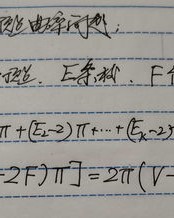 曲率问题:
E条棱. F个
π + (E₂-2)π + … + (Eₓ-2)
-2F)π] = 2π(V-